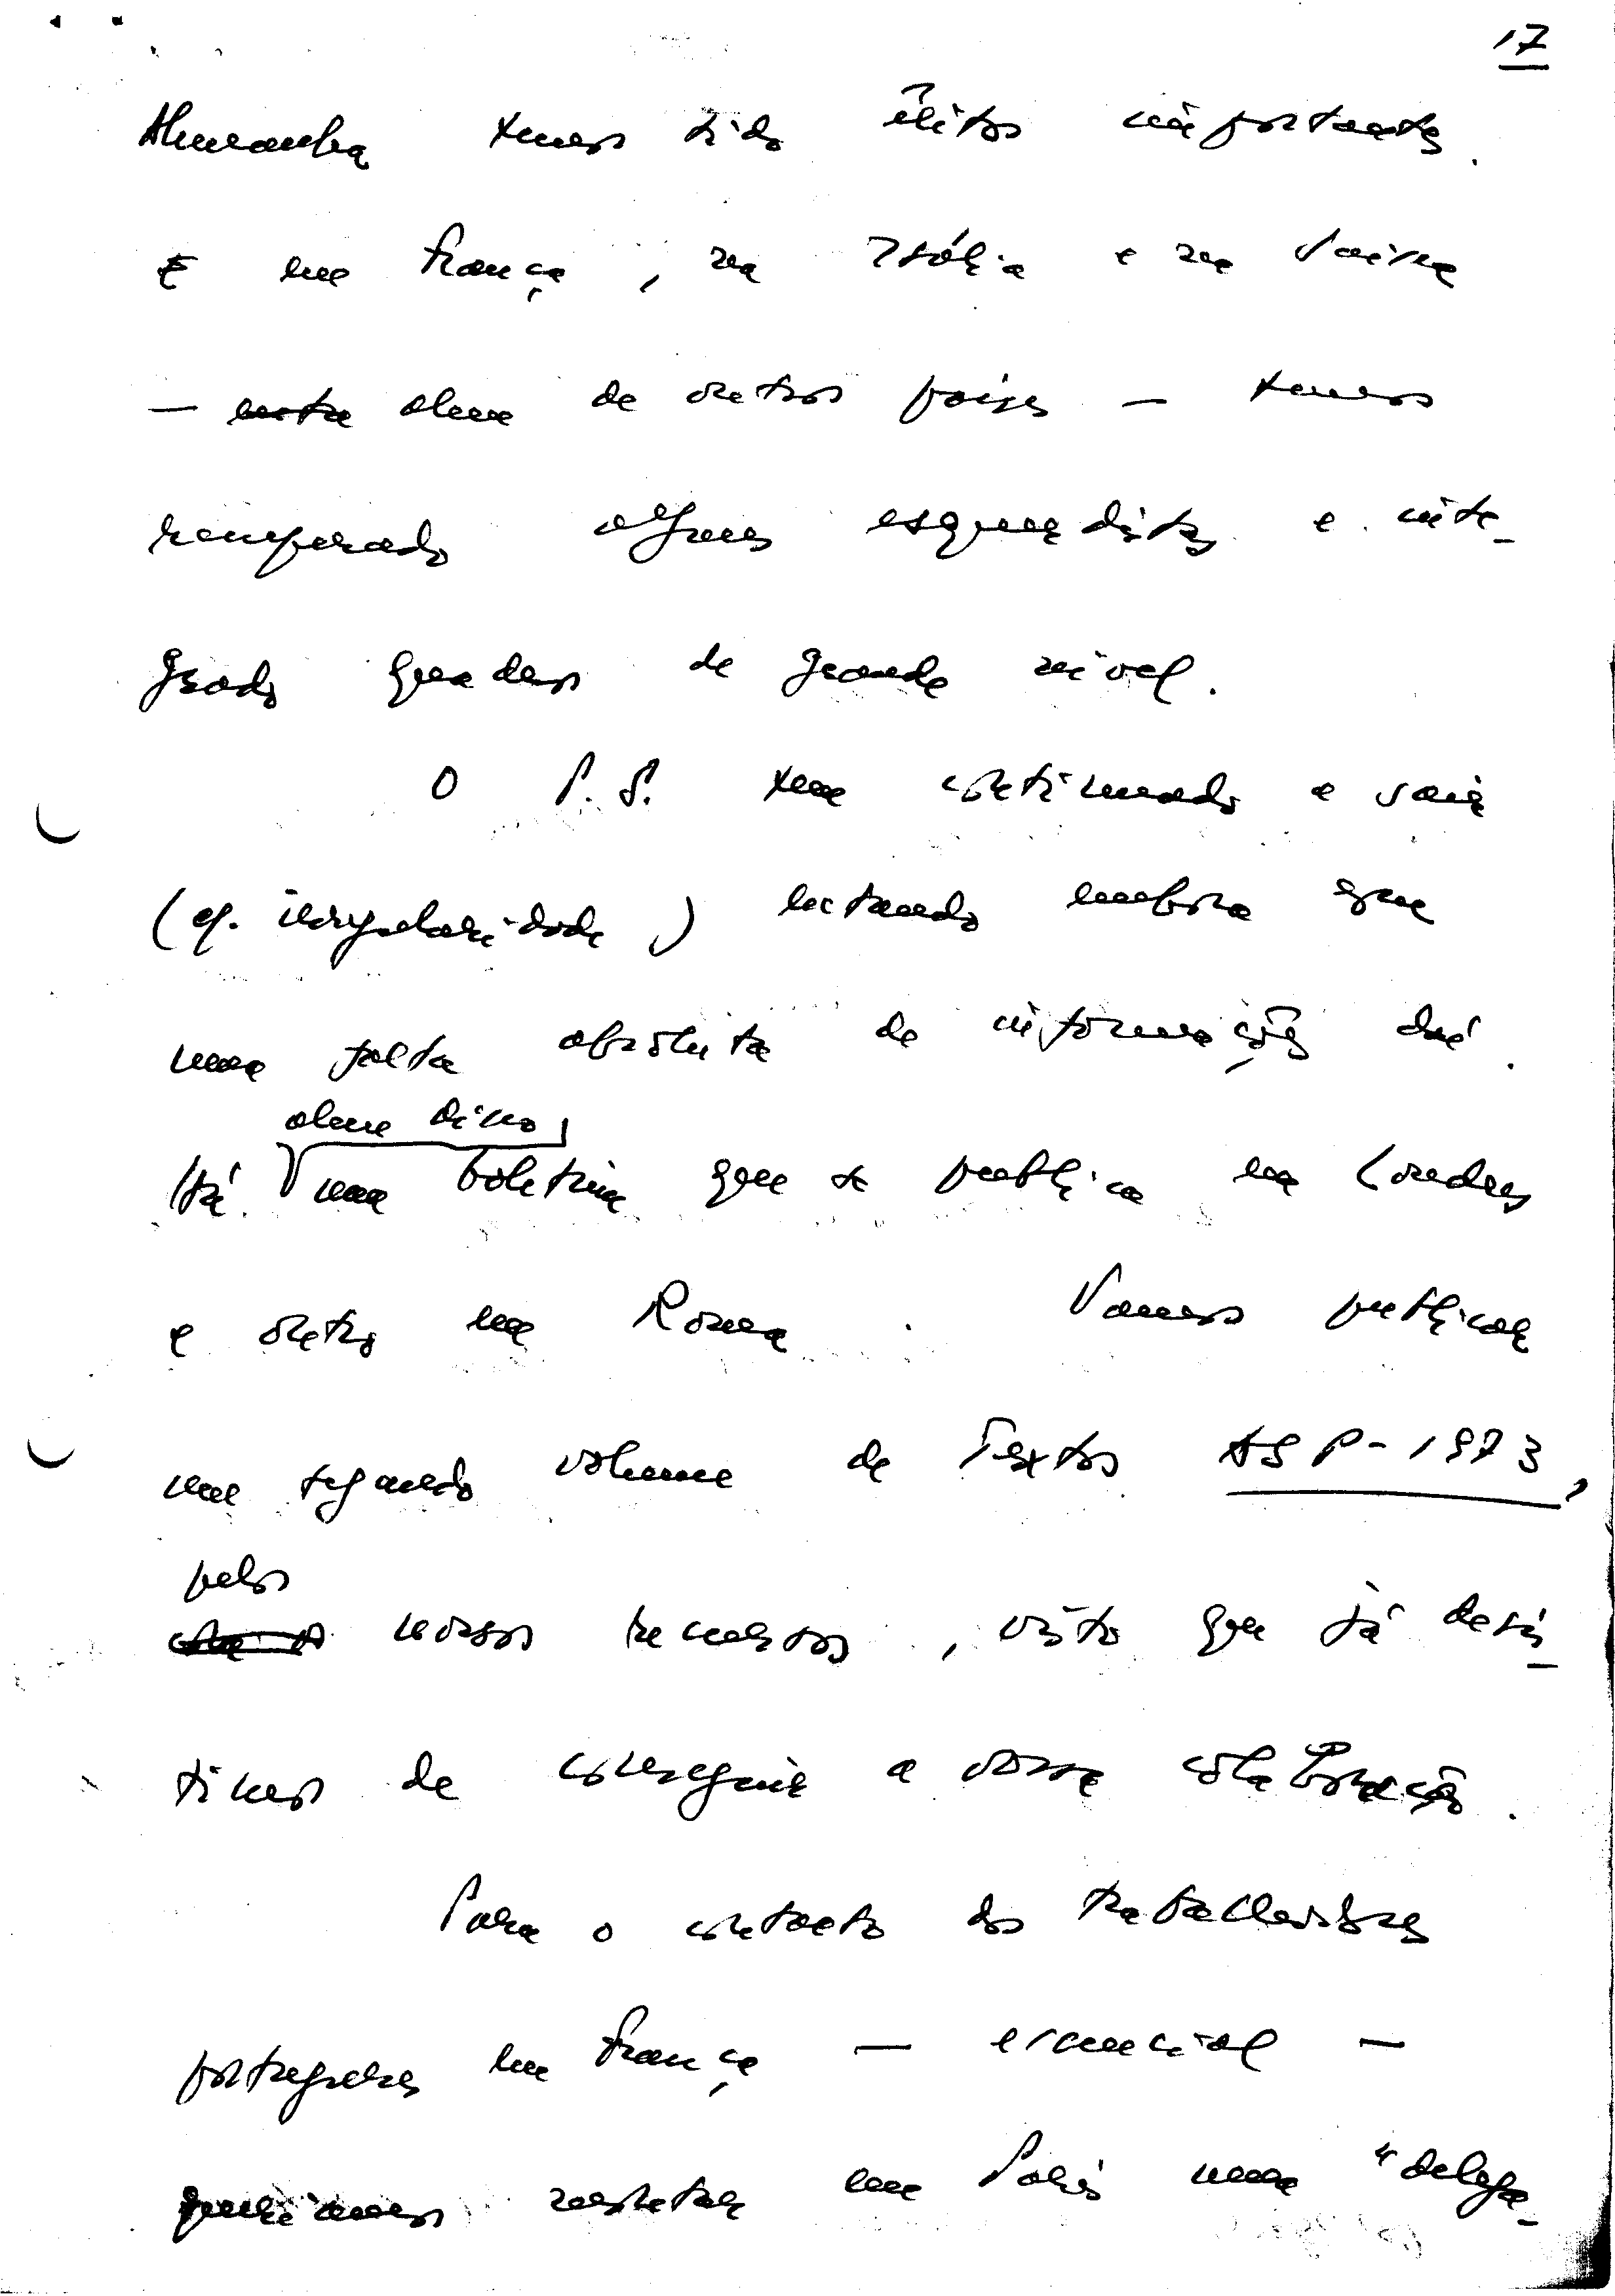 17
Alemanha temos tido êxitos importantes.
E em França, na Itália e na Suíça
— alem de outros países — temos
recuperado alguns esquerdistas e inte-
grado quadros de grande nível.
O P.S. tem continuado a sair
(cf. irregularidade) lutando embora com
uma falta absoluta de informações daí.
Há um boletim que se publica em Londres
alem disso
e outro em Roma. Vamos publicar
um segundo volume de Textos ASP-1973,
pelos
nossos recursos, visto que já desis-
timos de conseguir a vossa colaboração.
Para o contacto dos trabalhadores
portugueses em França — essencial —
queriamos montar em Paris uma "delega-